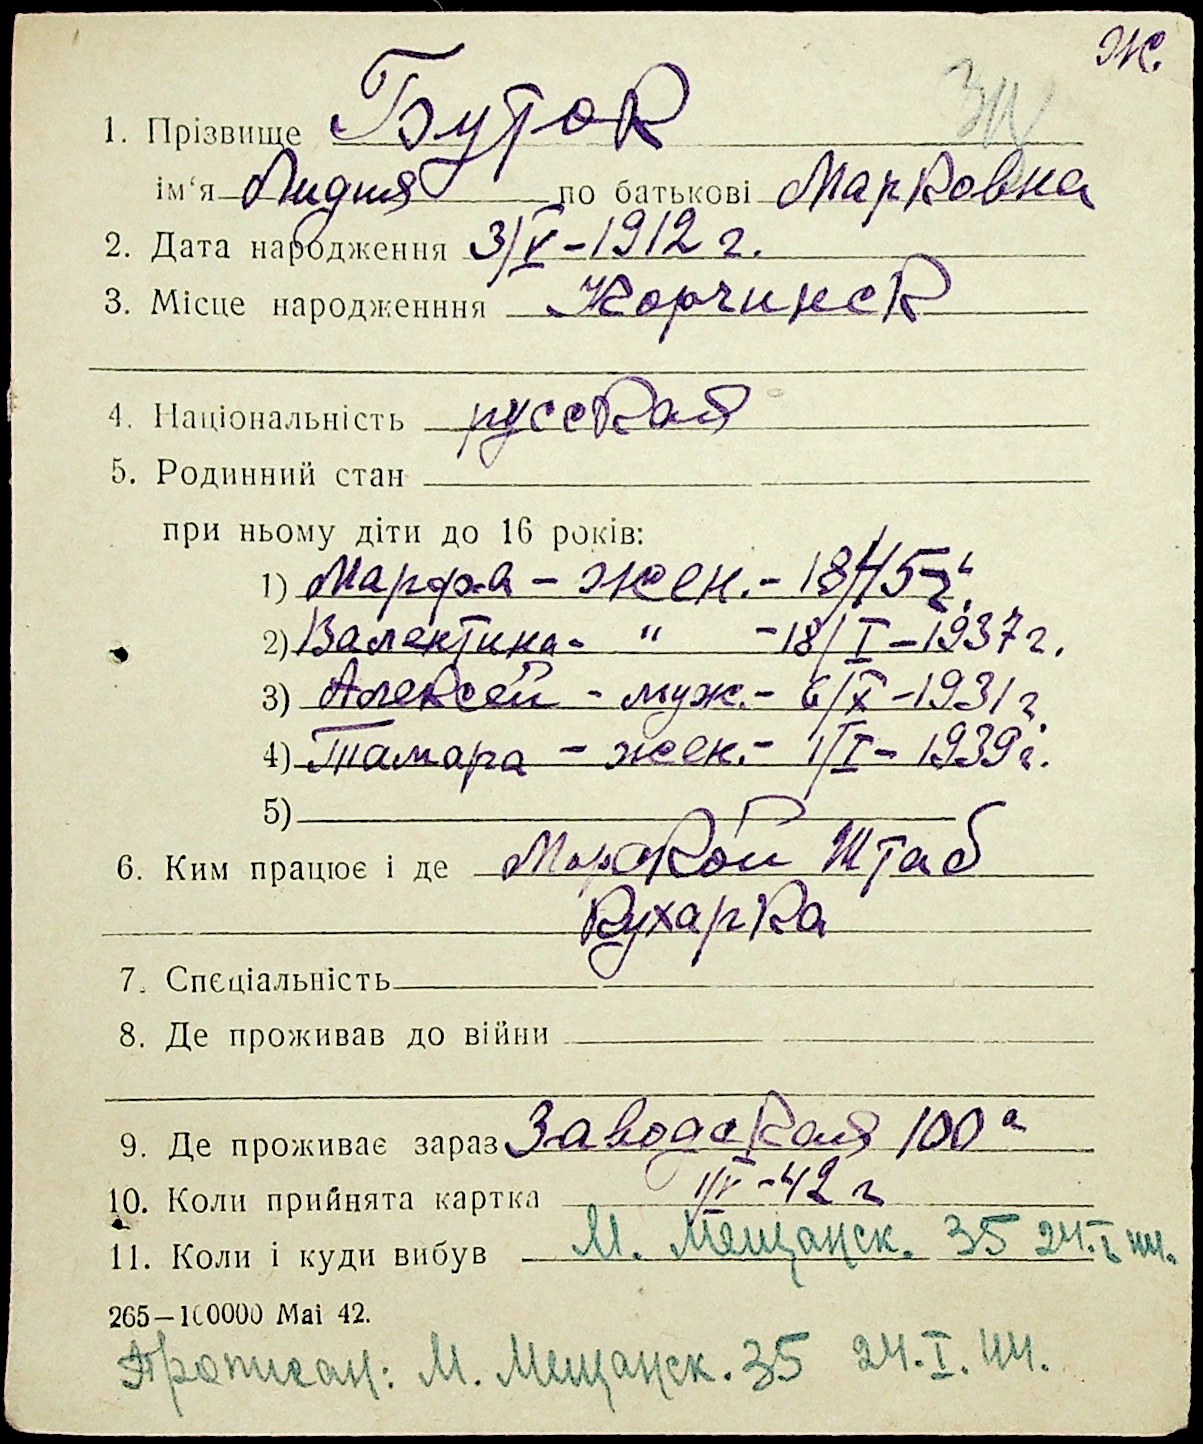 Ж.
1. Прізвище Буток
ім'я Лидия по батькові Марковна
2. Дата народження 3/V-1912 г.
3. Місце народженння Корчинск
4. Національність русская
5. Родинний стан
при ньому діти до 16 років:
1) Марфа - жен. - 18/
2) Валентина - " - 18/I - 1937 г.
3) Алексей - муж. - 6/X - 1931 г.
4) Тамара - жен. - 1/I - 1939 г.
5)
6. Ким працює і де Морской Штаб
Кухарка
7. Спєціальність
8. Де проживав до війни
9. Де проживає зараз Заводская 100 а
10. Коли прийнята картка 1/V-42 г
11. Коли і куди вибув М. Мещанск. 35 24.I 44.
265—100000 Mai 42.
Прописан: М. Мещанск. 35 24.I.44.